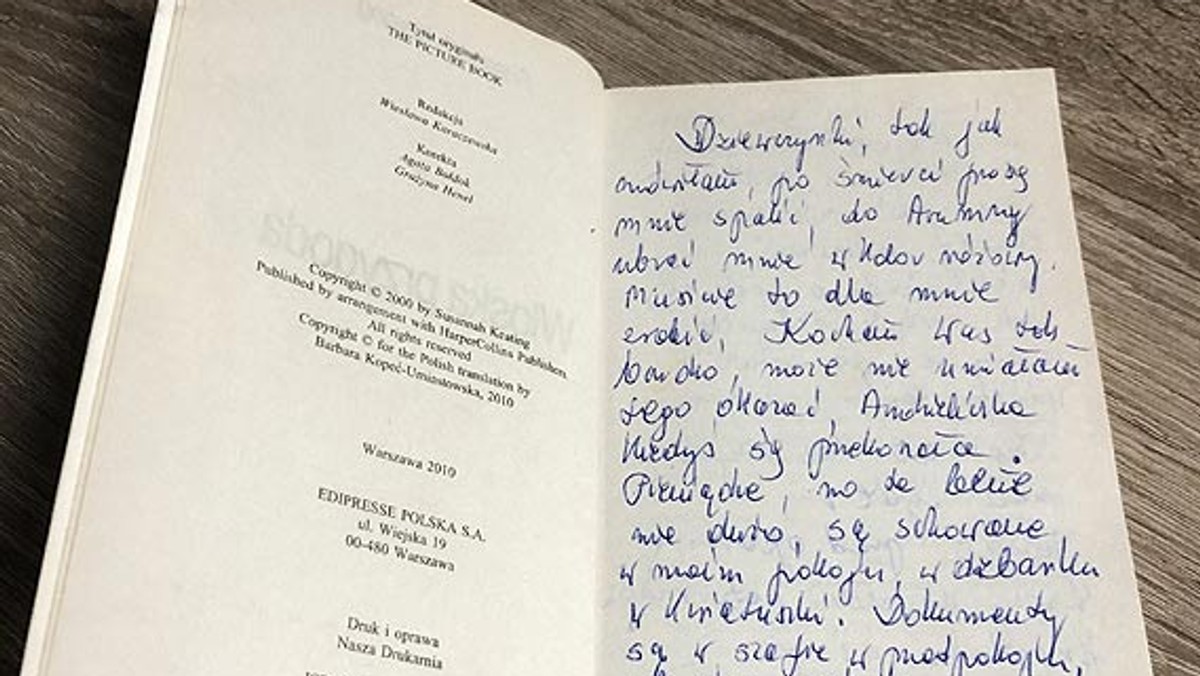 Tytuł oryginału
THE PICTURE BOOK
Redakcja
Wiesława Karaczewska
Korekta
Agata Bołdok
Grażyna Henel
Copyright © 2000 by Susannah Keating
Published by arrangement with HarperCollins Publishers.
All rights reserved
Copyright © for the Polish translation by
Barbara Kopeć-Umiastowska, 2010
Warszawa 2010
EDIPRESSE POLSKA S.A.
ul. Wiejska 19
00-480 Warszawa
Druk i oprawa
Nasza Drukarnia
Dziewczynki, tak jak
mówiłam, po śmierci proszę
mnie spalić, do trumny
ubrać mnie w kolor różowy.
Musicie to dla mnie
zrobić. Kocham was tak
bardzo, może nie umiałam
tego okazać,
kiedyś się przekonała.
Pieniądze, no za wiele
nie dużo, są schowane
w moim pokoju, w dzbanku
w kwiatuszki. Dokumenty
są w szafie w przedpokoju,